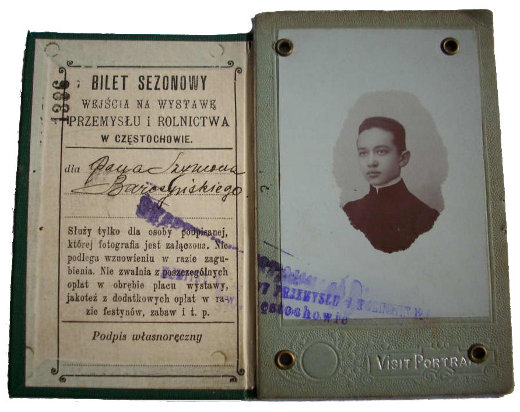 1396
BILET SEZONOWY
WEJŚCIA NA WYSTAWĘ
PRZEMYSŁU I ROLNICTWA
W CZĘSTOCHOWIE.
dla Pana Szymona
Barczyńskiego
Służy tylko dla osoby podpisanej,
której fotografia jest załączona. Nie
podlega wznowieniu w razie zagu-
bienia. Nie zwalnia z poszczególnych
opłat w obrębie placu wystawy,
jakoteż z dodatkowych opłat w ra-
zie festynów, zabaw i t. p.
Podpis własnoręczny
PRZEMYSŁU I
VISIT PORTRA